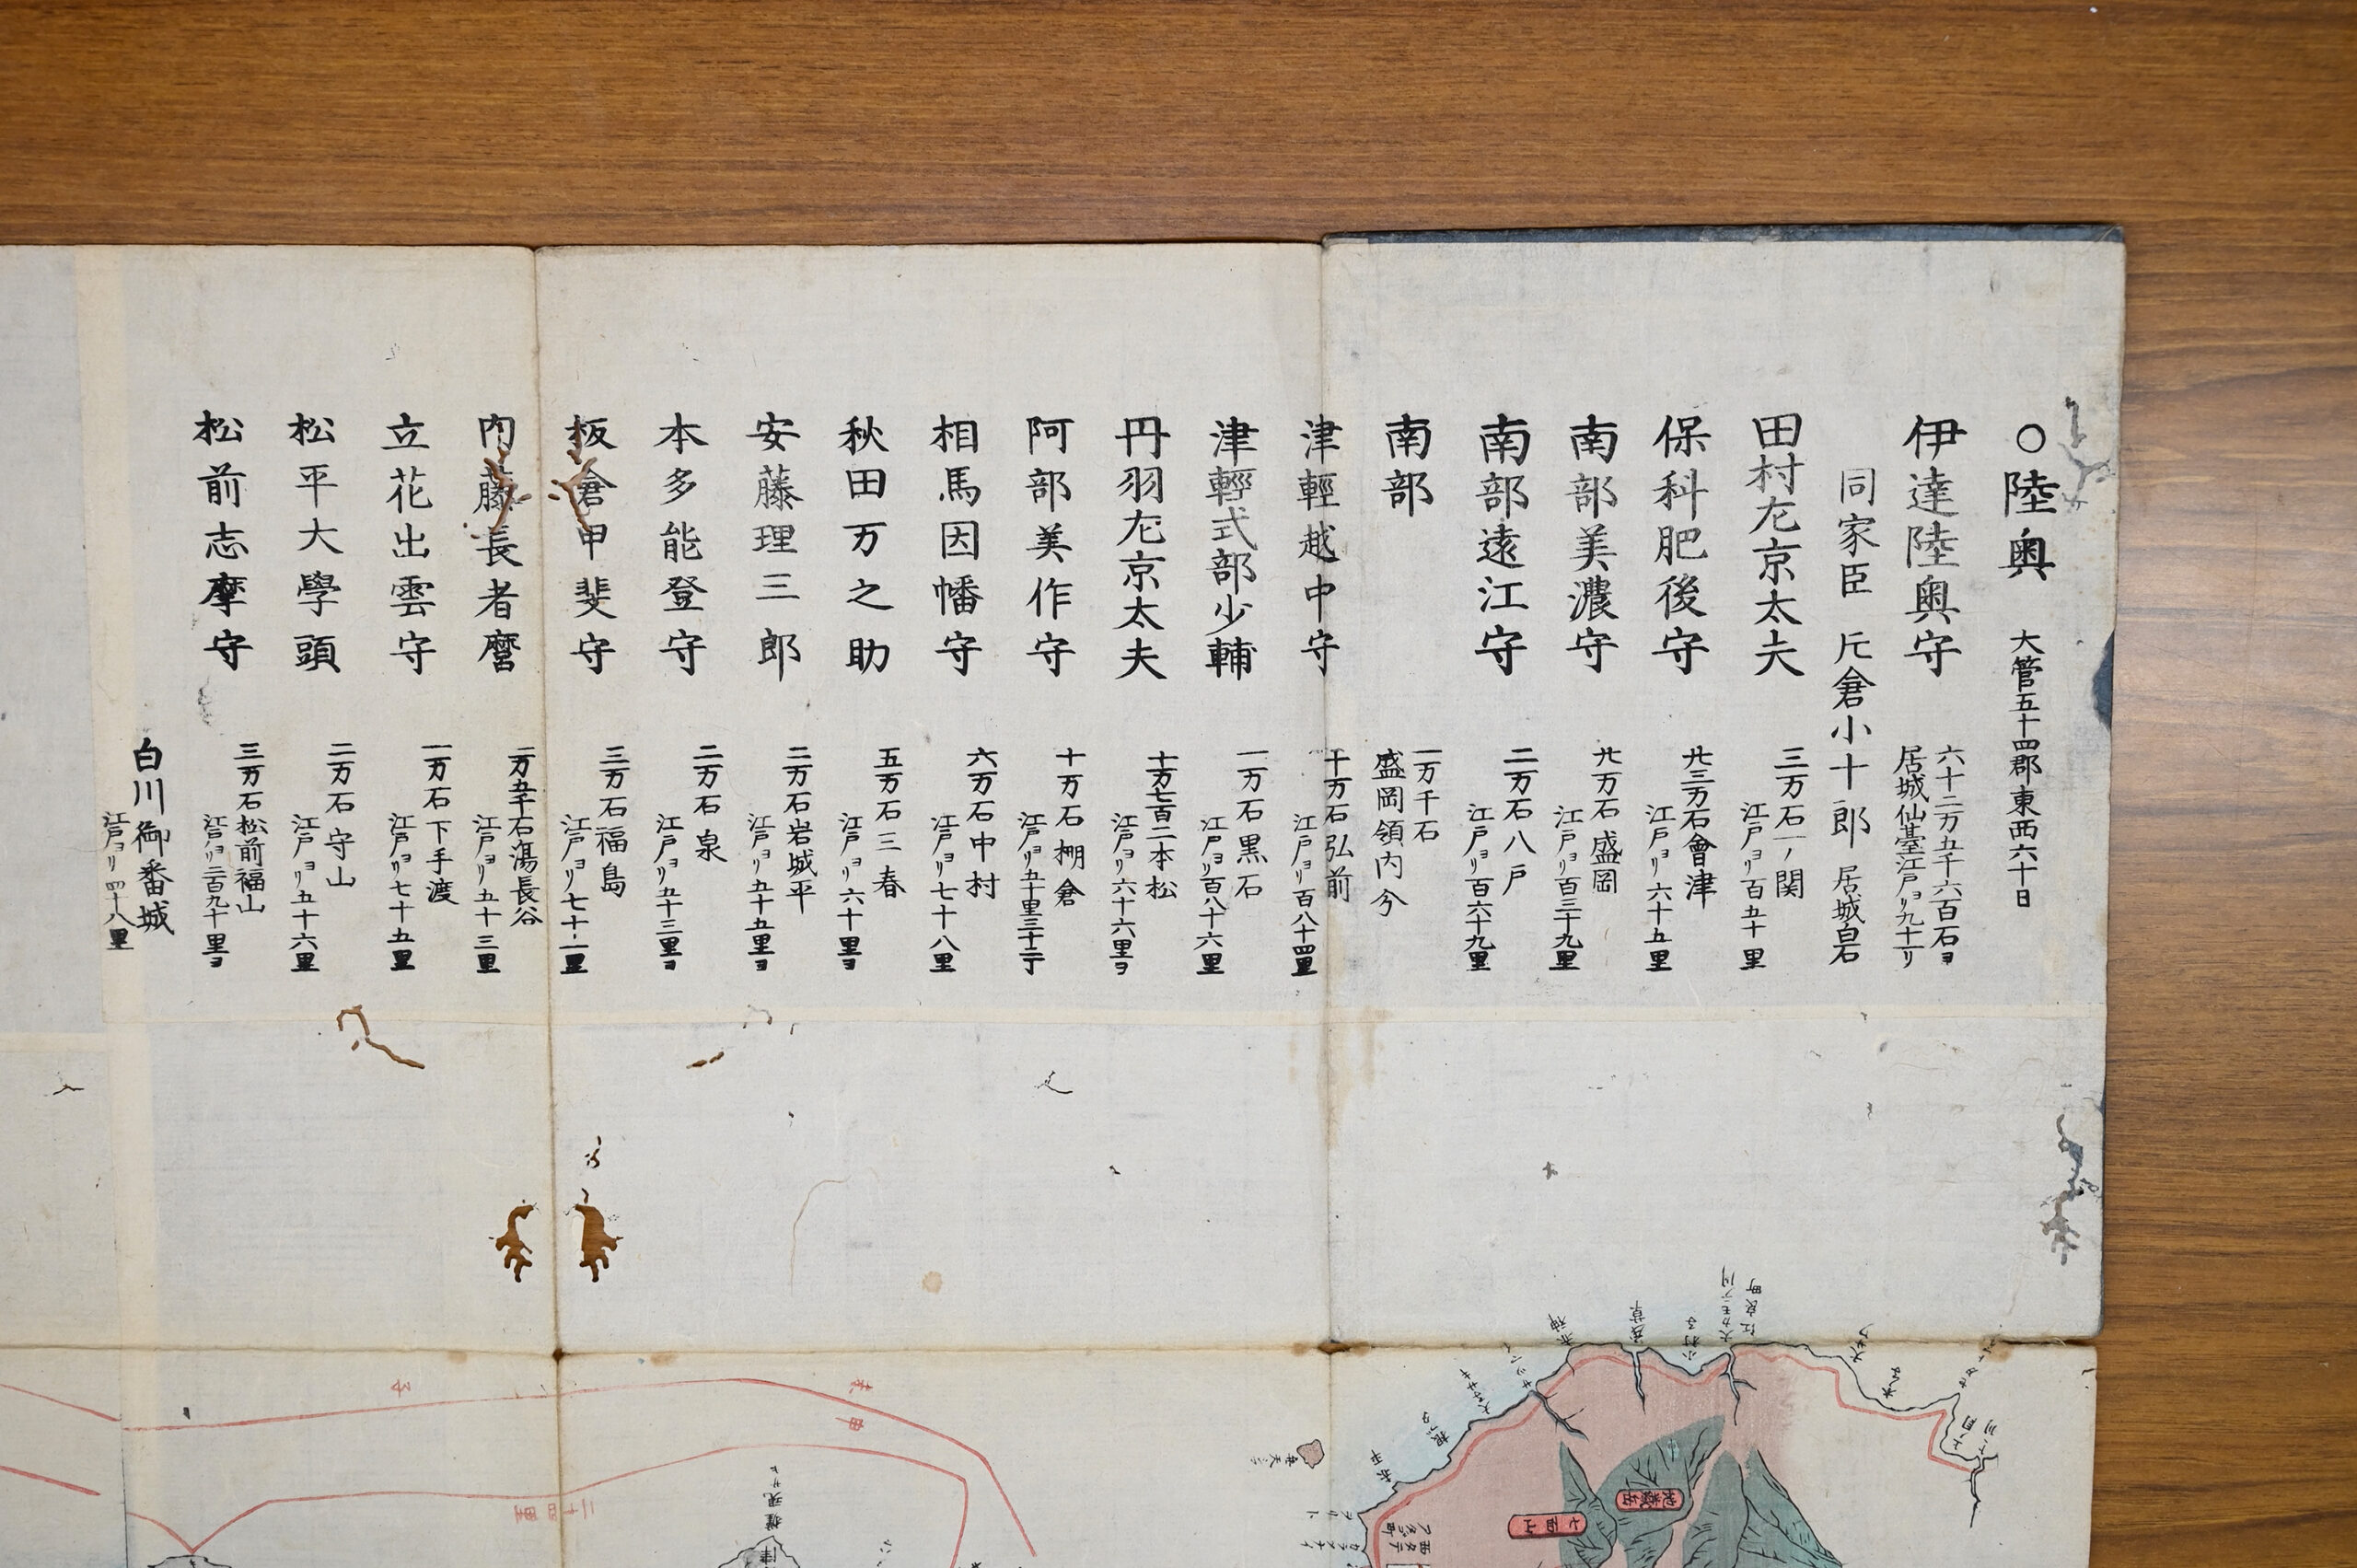 ○陸奥 大管五十四郡東西六十日
伊達陸奥守 六十二万五千六百石ヨ
居城仙臺江戸ヨリ九十一リ
同家臣 片倉小十郎 居城白石
田村左京太夫 三万石一ノ関
江戸ヨリ百五十里
保科肥後守 廿三万石會津
江戸ヨリ六十五里
南部美濃守 廿万石盛岡
江戸ヨリ百三十九里
南部遠江守 二万石八戸
江戸ヨリ百六十九里
南部 一万千石
盛岡領内分
津輕越中守 十万石弘前
江戸ヨリ百八十四里
津輕式部少輔 一万石黒石
江戸ヨリ百八十六里
丹羽左京太夫 十万七百二本松
江戸ヨリ六十六里ヨ
阿部美作守 十万石棚倉
江戸ヨリ五十里三十二丁
相馬因幡守 六万石中村
江戸ヨリ七十八里
秋田万之助 五万石三春
江戸ヨリ六十里ヨ
安藤理三郎 二万石岩城平
江戸ヨリ五十五里ヨ
本多能登守 二万石泉
江戸ヨリ五十三里ヨ
板倉甲斐守 三万石福島
江戸ヨリ七十二里
内藤長者麿 一万五千石湯長谷
江戸ヨリ五十三里
立花出雲守 一万石下手渡
江戸ヨリ七十五里
松平大學頭 二万石守山
江戸ヨリ五十六里
松前志摩守 三万石松前福山
江戸ヨリ二百九十里ヨ
白川御番城
江戸ヨリ四十八里
江良町
赤神
茂草
小村子
根ブタ
七面山
地蔵岳
三十四里